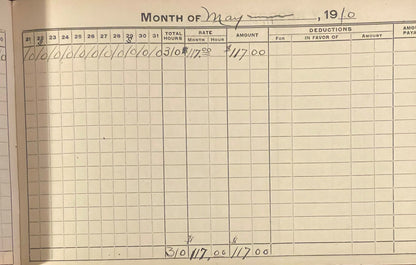 MONTH OF May, 1910
21 22 23 24 25 26 27 28 29 30 31 TOTAL HOURS RATE MONTH HOUR AMOUNT DEDUCTIONS FOR IN FAVOR OF AMOUNT AMOUNT PAYA
10 10 10 10 10 10 10 10 10 10 10 310 $117.00 $117 00
310 117.00 117 00